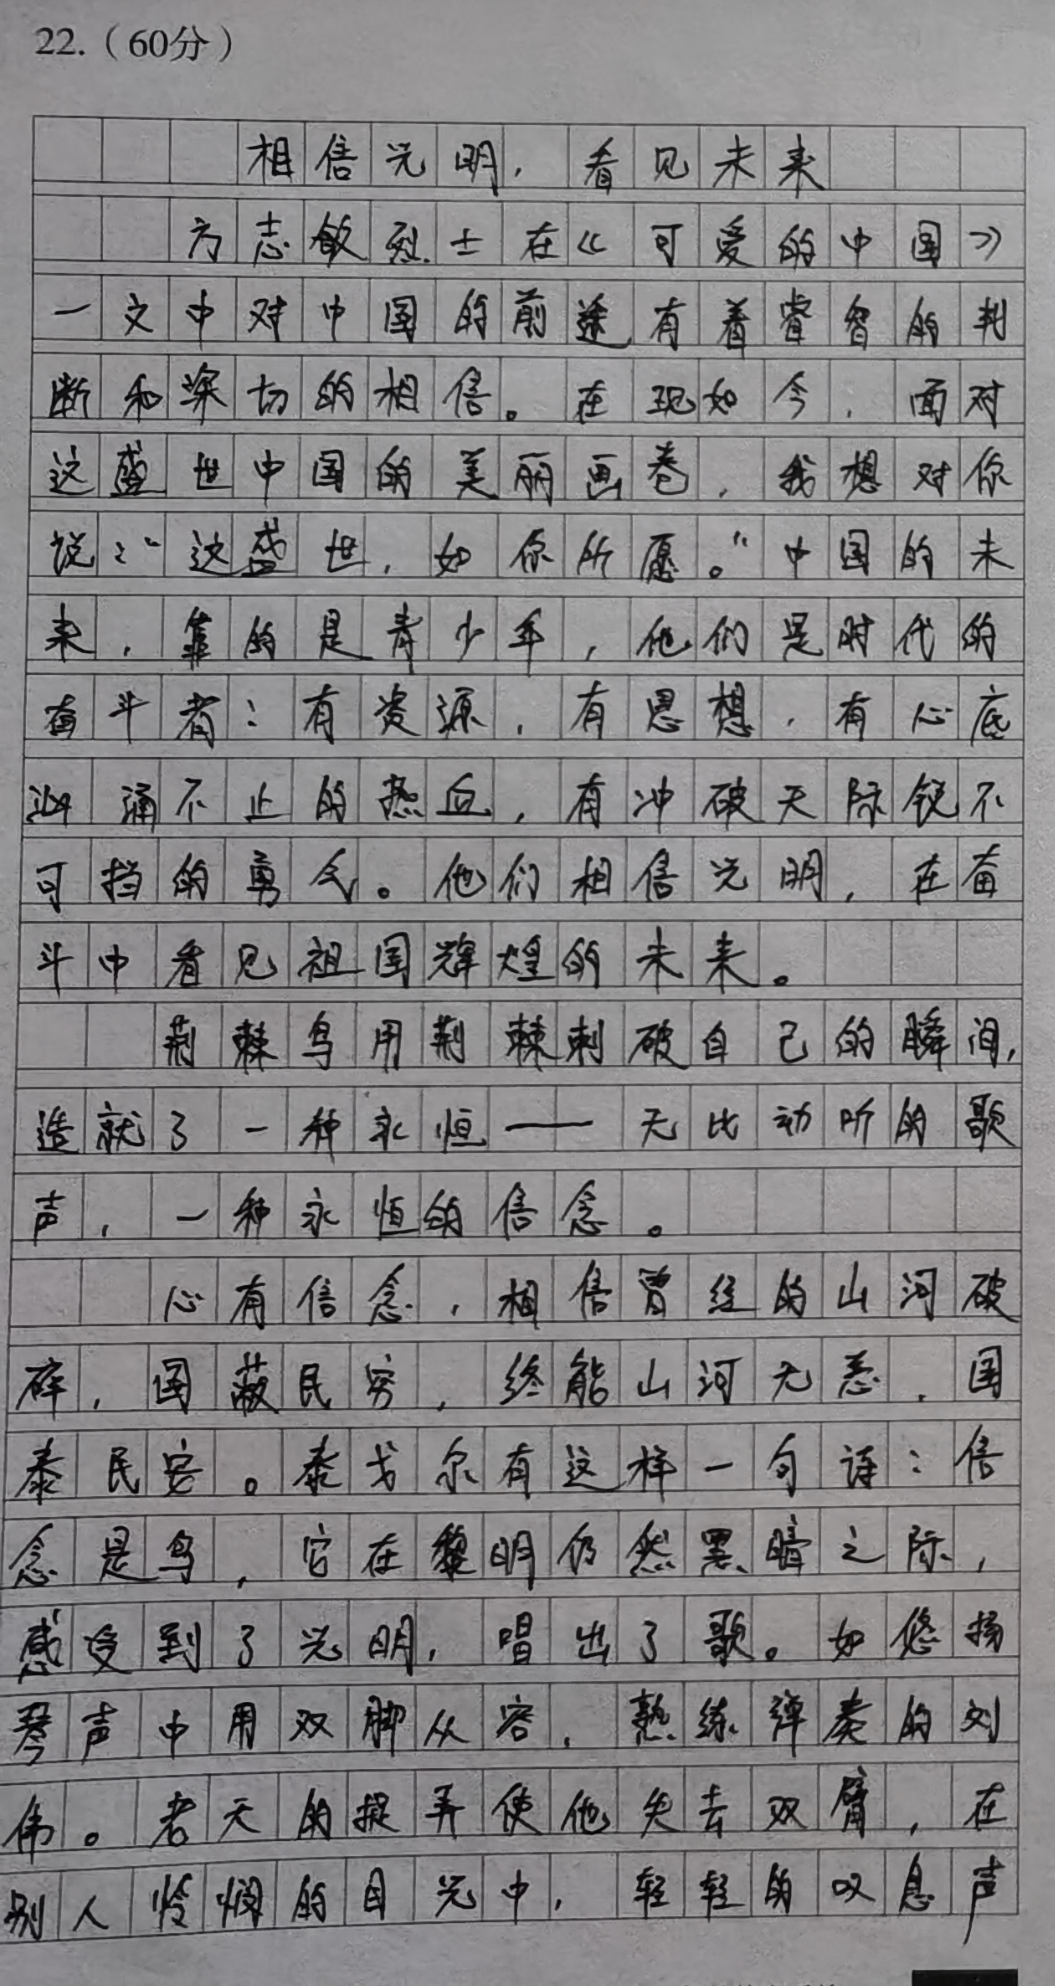 22.(60分)
相信光明,看见未来
方志敏烈士在《可爱的中国》
一文中对中国的前途有着睿智的判
断和深切的相信。在现如今,面对
这盛世中国的美丽画卷,我想对你
说:“这盛世,如你所愿。”中国的未
来,靠的是青少年,他们是时代的
奋斗者:有资源,有思想,有心底
汹涌不止的热血,有冲破天际锐不
可挡的勇气。他们相信光明,在奋
斗中看见祖国辉煌的未来。
荆棘鸟用荆棘刺破自己的瞬间,
造就了一种永恒——无比动听的歌
声,一种永恒的信念。
心有信念,相信曾经的山河破
碎,国蔽民穷,终能山河无恙,国
泰民安。泰戈尔有这样一句诗:信
念是鸟,它在黎明仍然黑暗之际,
感受到了光明,唱出了歌。如悠扬
琴声中用双脚从容,熟练弹奏的刘
伟。老天的捉弄使他失去双臂,在
别人怜悯的目光中,轻轻的叹息声